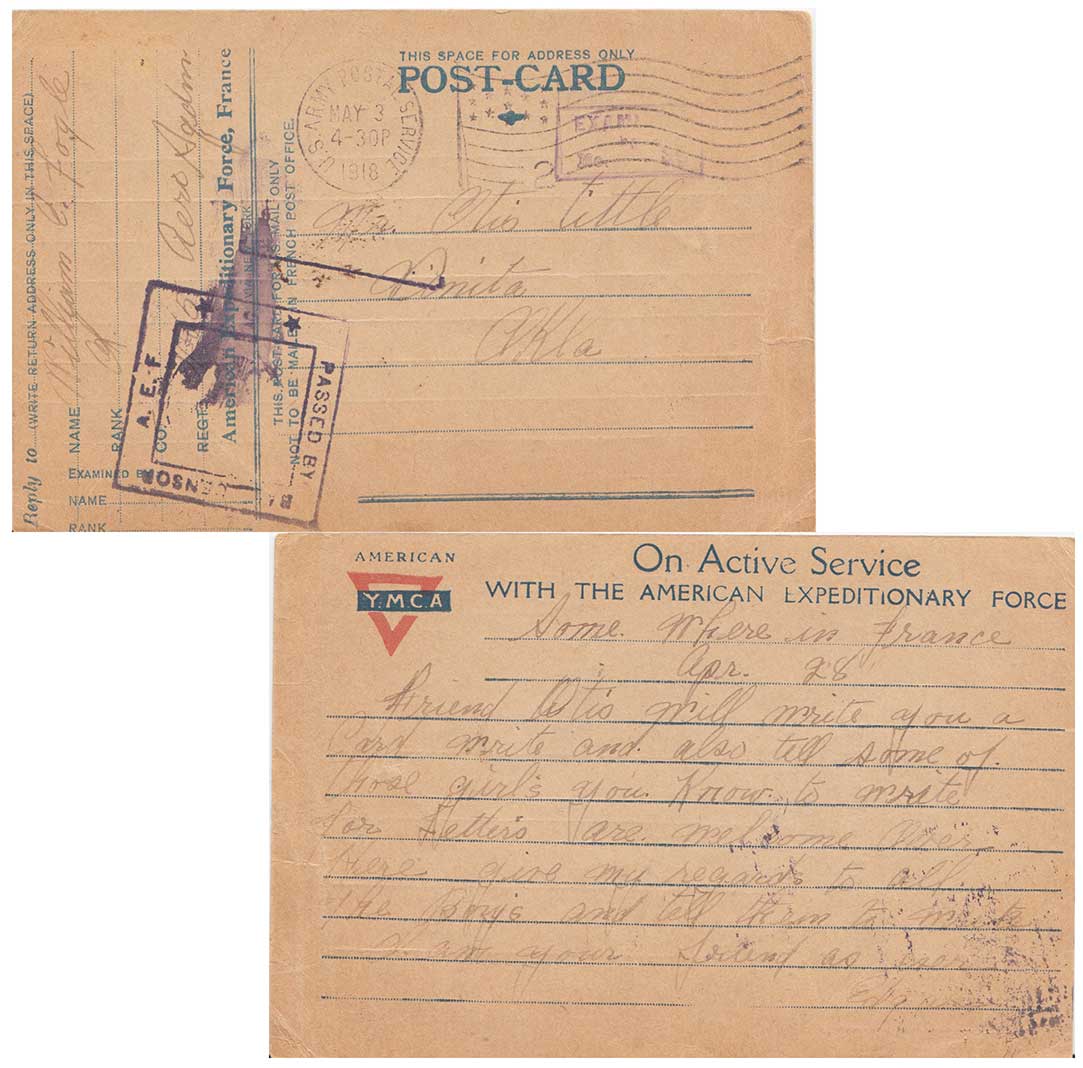 THIS SPACE FOR ADDRESS ONLY
POST-CARD
U.S. ARMY POSTAL SERVICE
MAY 3
4-30P
1918
Mr. Otis Little
Vinita
Okla
Reply to (WRITE RETURN ADDRESS ONLY IN THIS SPACE)
NAME William E. Fogle
RANK
CO.
REGT. Aero Sqdrn
American Expeditionary Force, France
EXAMINED BY
NAME
RANK
THIS POST-CARD FOR U.S. MAIL ONLY
NOT TO BE MAILED IN FRENCH POST OFFICE.
A. E. F.
PASSED BY
CENSOR
AMERICAN
Y.M.C.A
On Active Service
WITH THE AMERICAN EXPEDITIONARY FORCE
Some Where in France
Apr. 28
Friend Otis will write you a
Card write and also tell some of
those girl's you Know to write
For Letters are welcome over
Here give my regards to all
the Boys and tell them to write
I am your Friend as ever